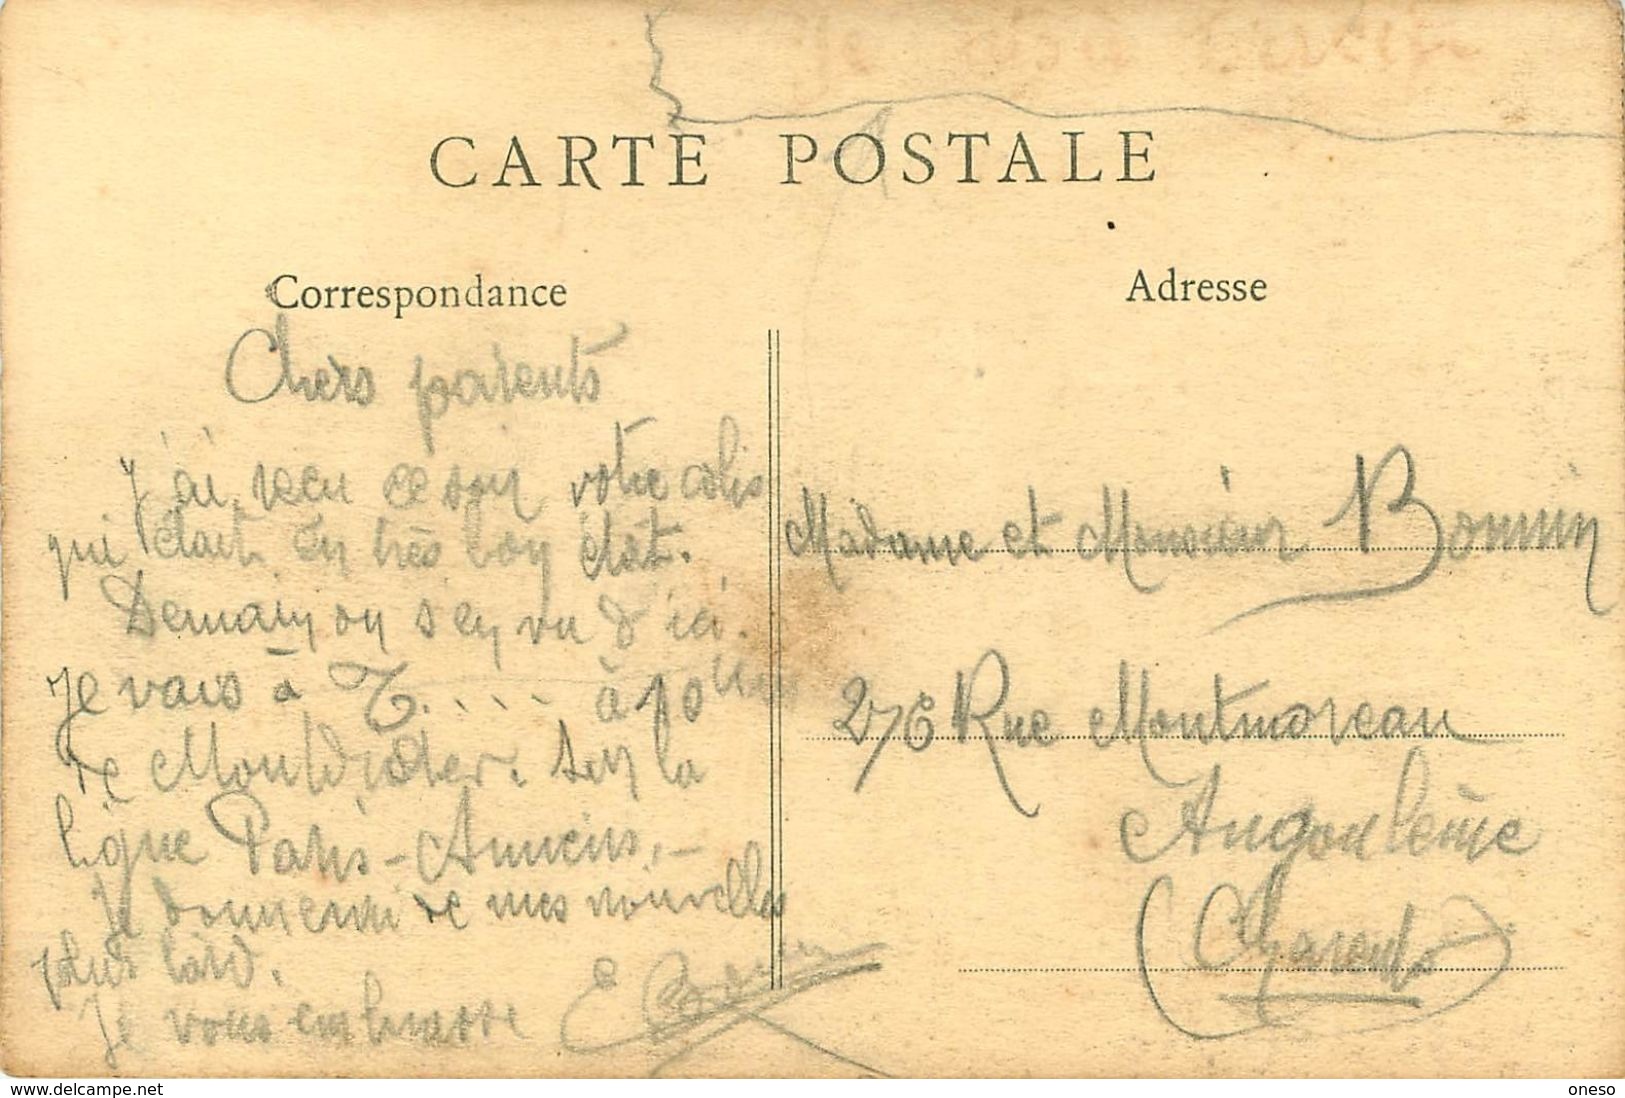 CARTE POSTALE
Correspondance
Adresse
Chers parents
J'ai reçu ce soir votre colis
qui était en très bon état.
Demain on s'en va d'ici.
Je vais à T.... à 10
de Montdidier. sur la
ligne Paris - Amiens. -
Je donnerai de mes nouvelles
plus tard.
Je vous embrasse E Bonnin
Madame et Monsieur Bonnin
276 Rue Montmoreau
Angoulême
(Charente)
www.delcampe.net
oneso